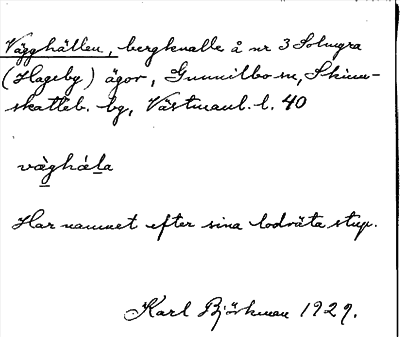 Vägghällen, bergknalle å nr 3 Solmyra
(Hageby) ägor, Gunnilbo sn, Skinn-
skatteb. bg, Västmanl. l. 40
vàghäla
Har namnet efter sina lodräta stup.
Karl Björkman 1929.